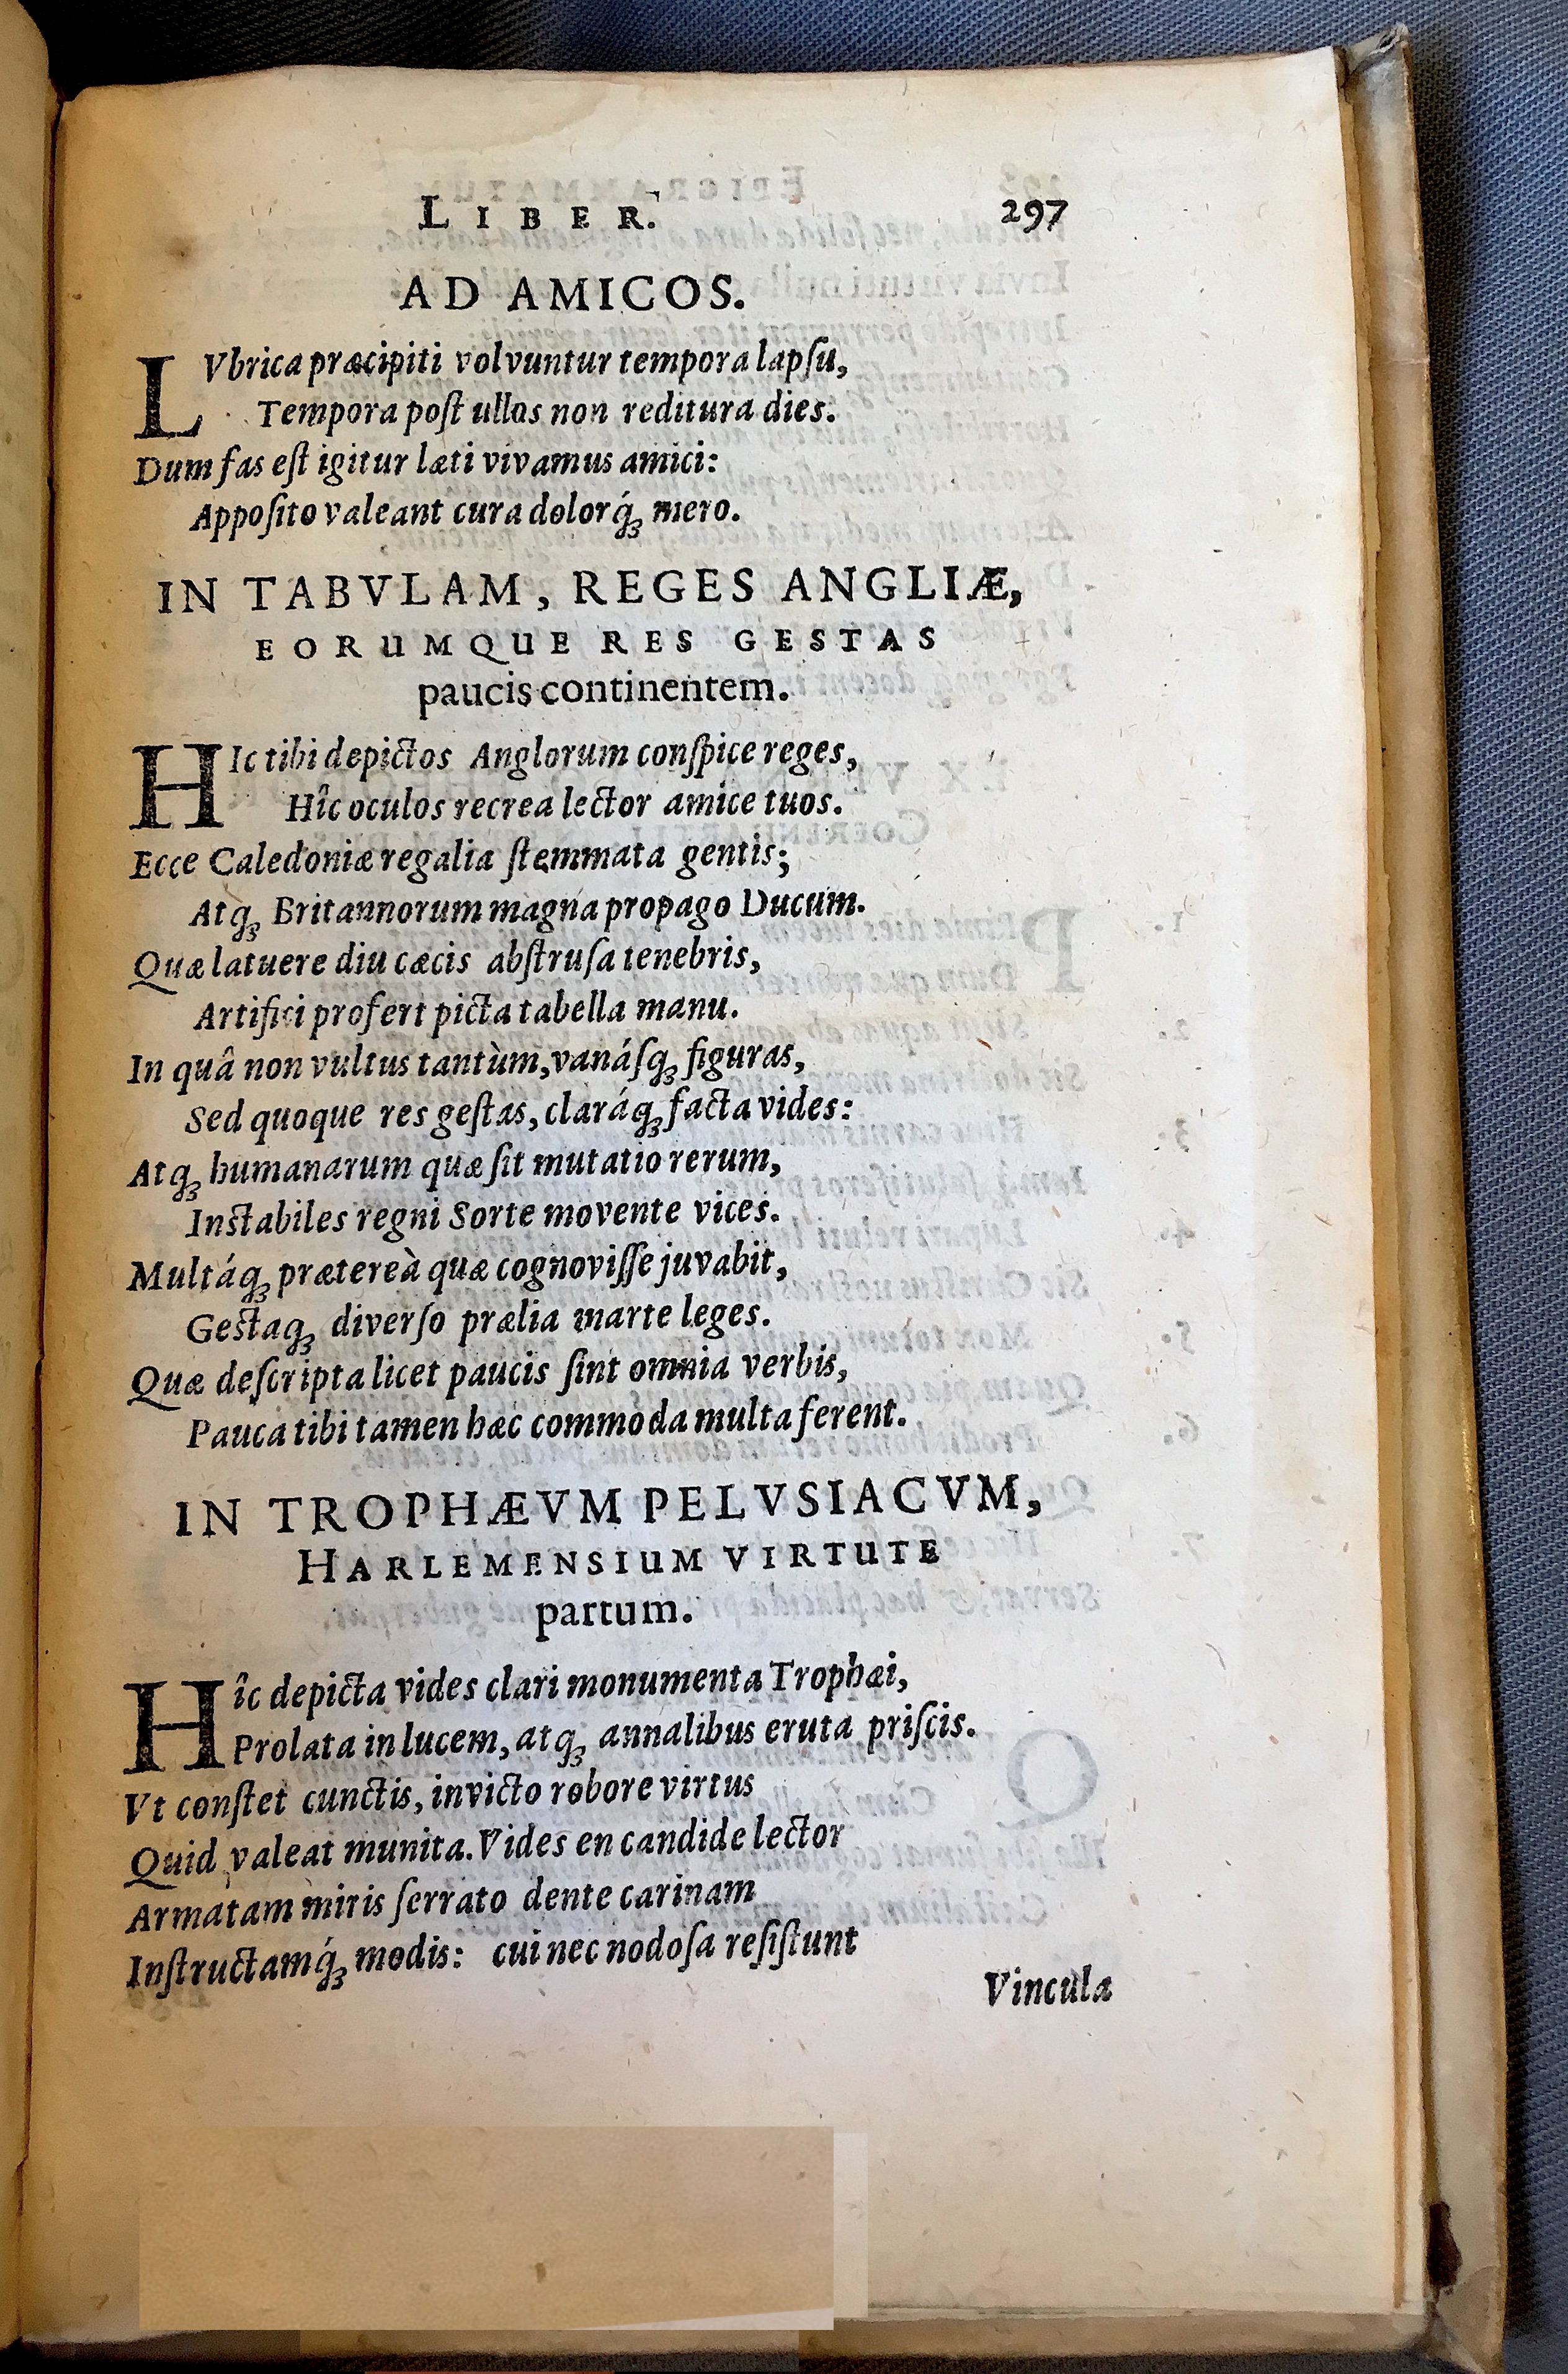 LIBER. 297
AD AMICOS.
LVbrica præcipiti volvuntur tempora lapſu,
Tempora poſt ullos non reditura dies.
Dum fas eſt igitur læti vivamus amici:
Appoſito valeant cura dolorq́ꝫ mero.
IN TABVLAM, REGES ANGLIÆ,
EORUMQUE RES GESTAS
paucis continentem.
HIc tibi depictos Anglorum conſpice reges,
Hîc oculos recrea lector amice tuos.
Ecce Caledoniæ regalia ſtemmata gentis;
Atqꝫ Britannorum magna propago Ducum.
Quæ latuere diu cæcis abſtruſa tenebris,
Artifici profert picta tabella manu.
In quâ non vultus tantùm, vanáſqꝫ figuras,
Sed quoque res geſtas, claráqꝫ facta vides:
Atqꝫ humanarum quæ ſit mutatio rerum,
Instabiles regni Sorte movente vices.
Multáqꝫ prætereà quæ cognoviſſe juvabit,
Gestaqꝫ diverſo prælia marte leges.
Quæ deſcripta licet paucis ſint omnia verbis,
Pauca tibi tamen hæc commoda multa ferent.
IN TROPHÆVM PELVSIACVM,
HARLEMENSIUM VIRTUTE
partum.
Hîc depicta vides clari monumenta Trophæi,
Prolata in lucem, atqꝫ annalibus eruta priſcis.
Vt conſtet cunctis, invicto robore virtus
Quid valeat munita. Vides en candide lector
Armatam miris ſerrato dente carinam
Inſtructamq́ꝫ modis: cui nec nodoſa reſiſtunt
Vincula